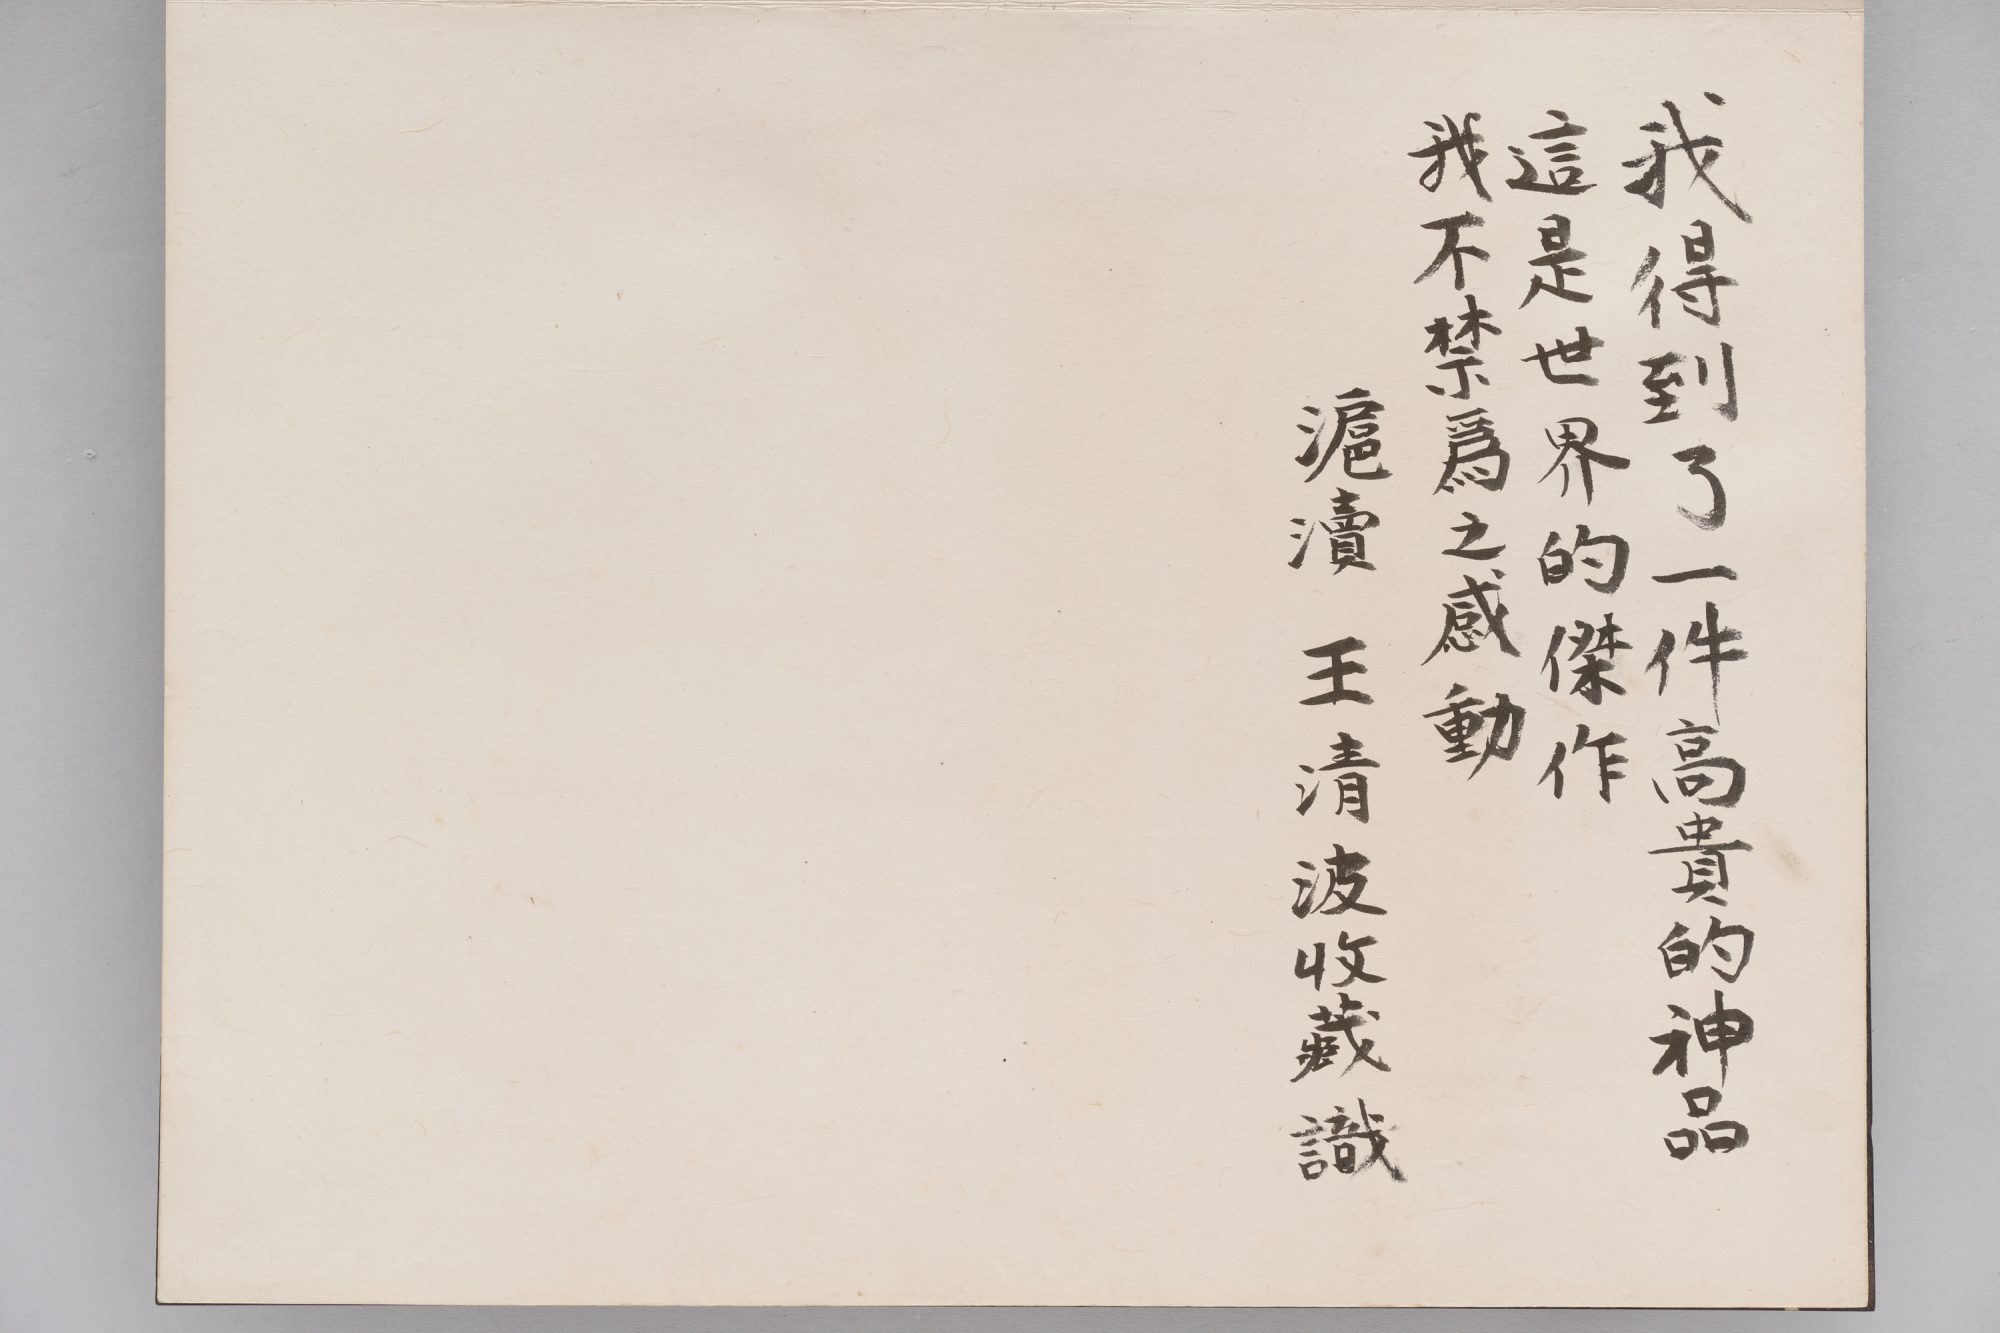 我得到了一件高貴的神品
這是世界的傑作
我不禁爲之感動
滬瀆 王清波收藏識